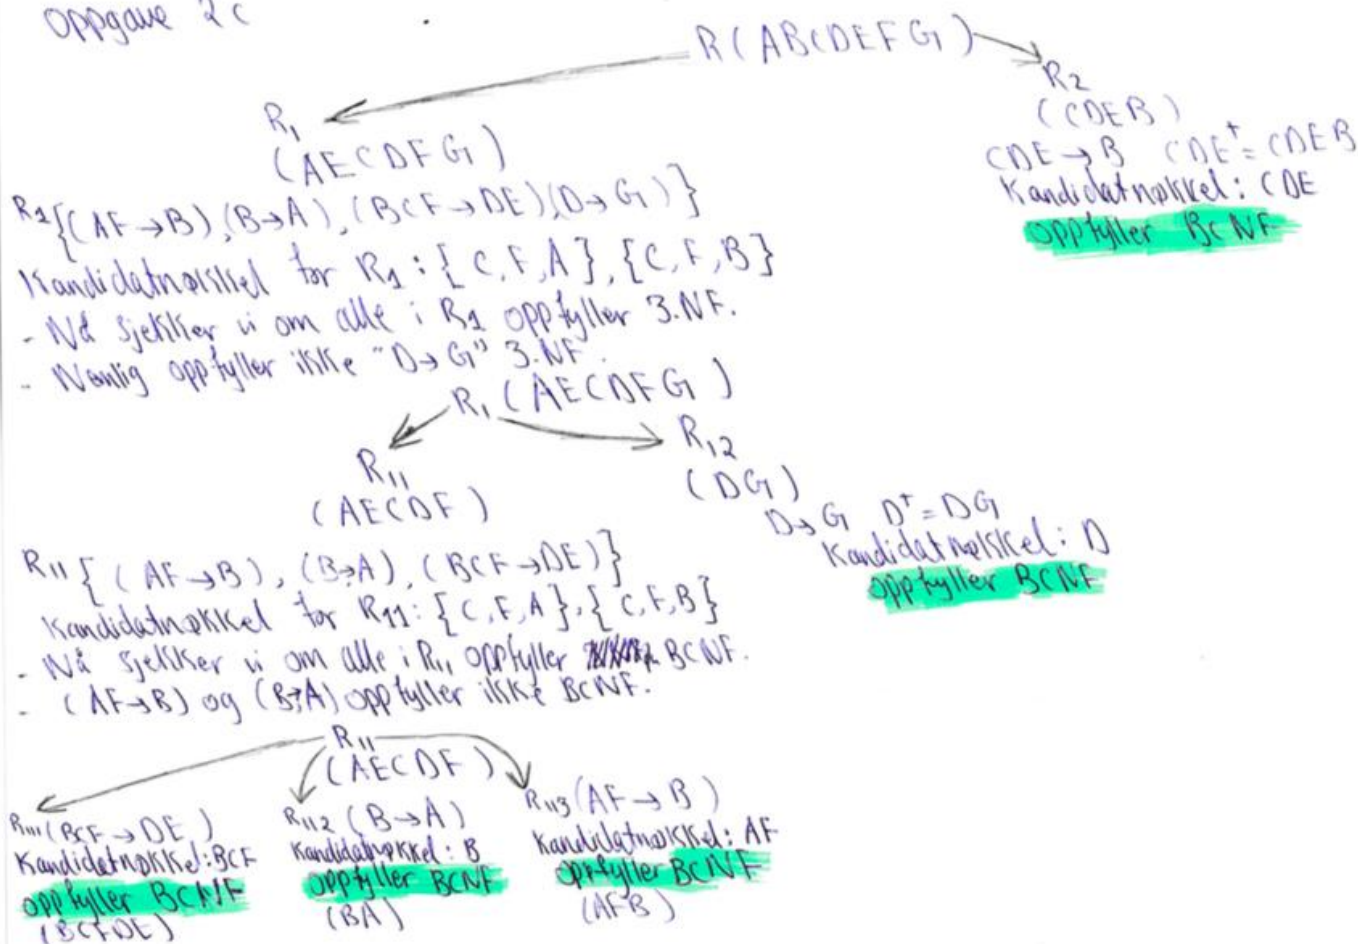 Oppgave 2c
R(ABCDEFG)
R1
(AECDFG)
R2
(CDEB)
CDE → B CDE+ = CDEB
Kandidatnøkkel: CDE
oppfyller BCNF
R1{(AF→B),(B→A),(BCF→DE)(D→G)}
Kandidatnøkkel for R1: {C,F,A},{C,F,B}
- Nå sjekker vi om alle i R1 oppfyller 3.NF.
- Nemlig oppfyller ikke "D→G" 3.NF.
R1(AECDFG)
R11
(AECDF)
R12
(DG)
D→G D+=DG
Kandidatnøkkel: D
oppfyller BCNF
R11{(AF→B),(B→A),(BCF→DE)}
Kandidatnøkkel for R11: {C,F,A},{C,F,B}
- Nå sjekker vi om alle i R11 oppfyller BCNF.
- (AF→B) og (B→A) oppfyller ikke BCNF.
R11
(AECDF)
R111(BCF→DE)
Kandidatnøkkel: BCF
oppfyller BCNF
(BCFDE)
R112(B→A)
Kandidatnøkkel: B
oppfyller BCNF
(BA)
R113(AF→B)
Kandidatnøkkel: AF
oppfyller BCNF
(AFB)